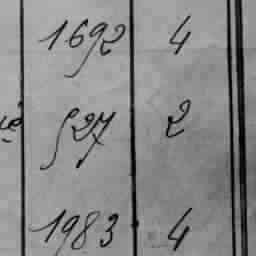 1692 4
527 2
1983 4